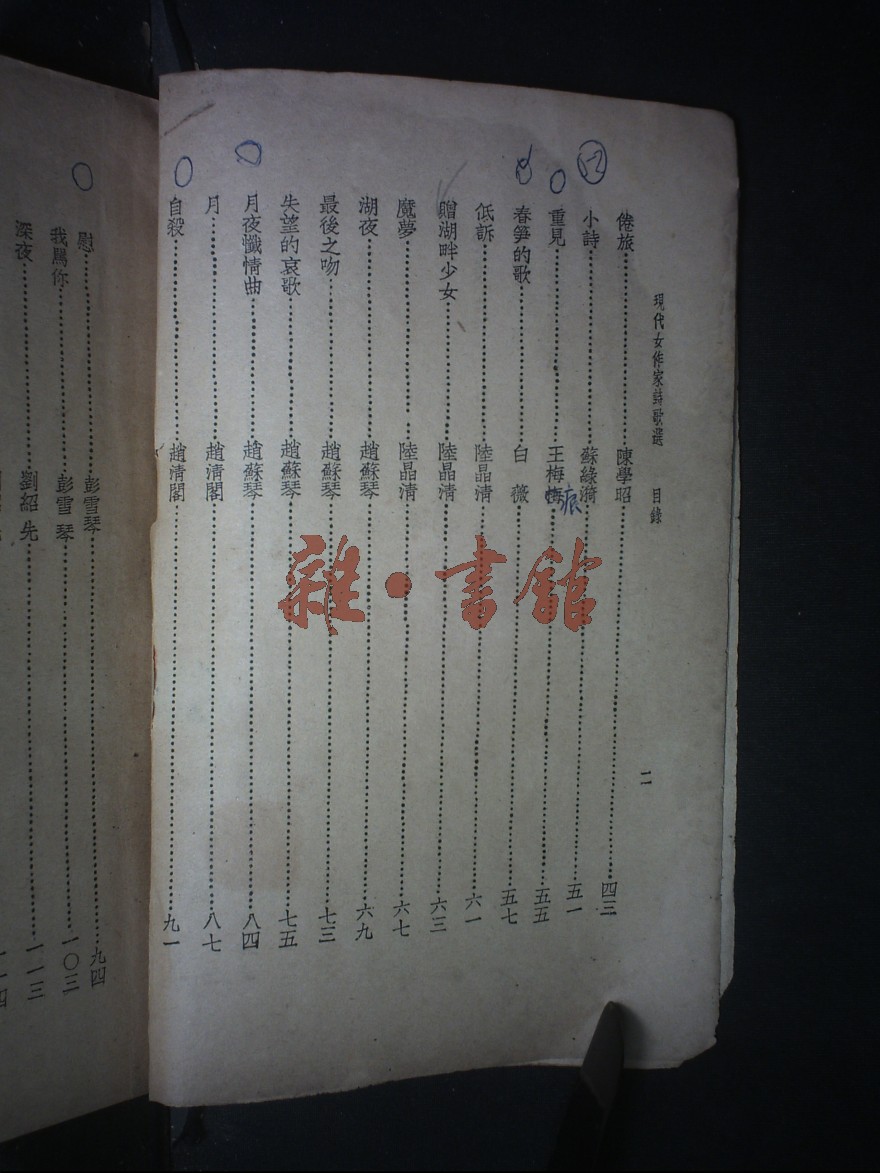 現代女作家詩歌選 目錄 二
倦旅 陳學昭 四三
小詩 蘇綠漪 五一
重見 王梅 痕 五五
春筍的歌 白薇 五七
低訴 陸晶清 六一
贈湖畔少女 陸晶清 六三
魔夢 陸晶清 六七
湖夜 趙蘇琴 六九
最後之吻 趙蘇琴 七三
失望的哀歌 趙蘇琴 七五
月夜懺情曲 趙蘇琴 八四
月 趙清閣 八七
自殺 趙清閣 九一
慰 彭雪琴 九四
我罵你 彭雪琴 一〇三
深夜 劉紹先 一一三
雜·書館